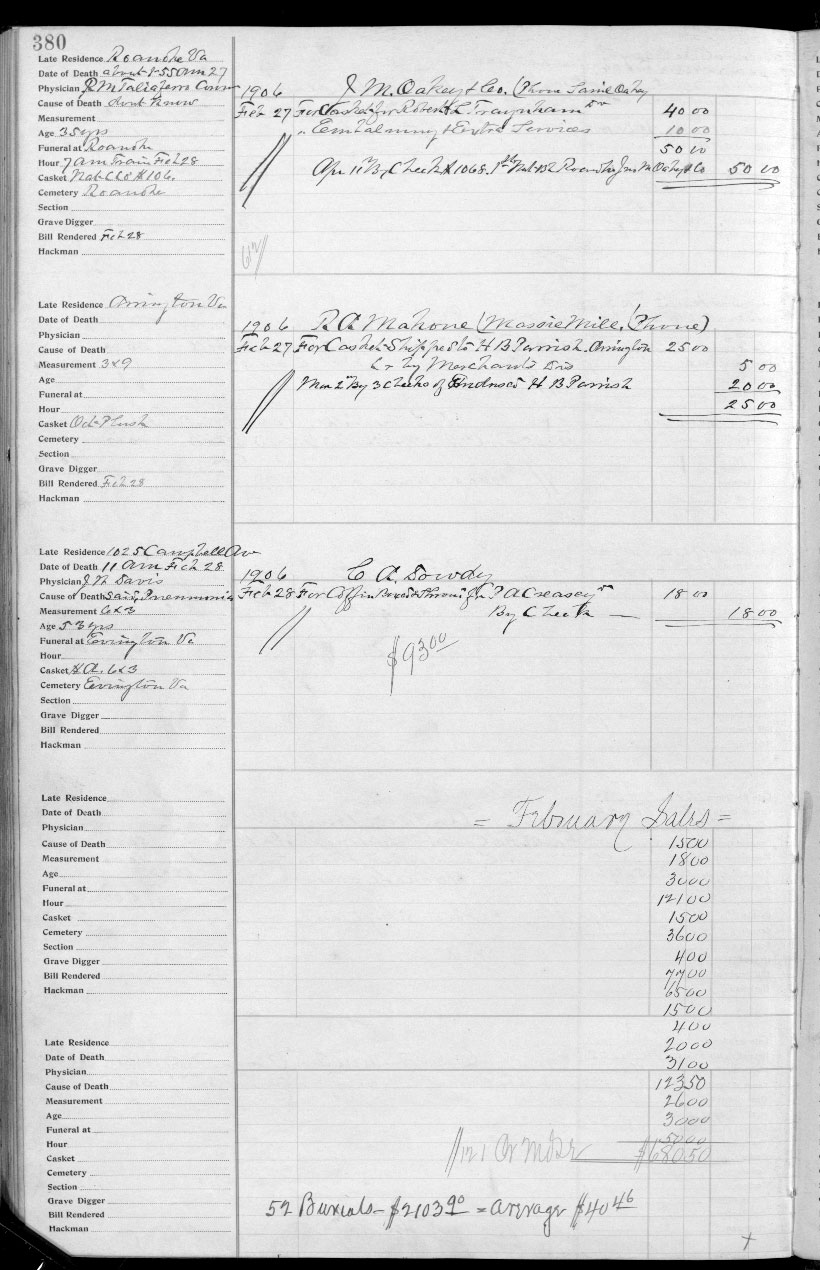 380
Late Residence Roanoke Va
Date of Death about 1-55 am 27
Physician R M Taliaferro Coroner
Cause of Death dont Know
Measurement
Age 35 yrs
Funeral at Roanoke
Hour 7 am Train Feb 28
Casket Nat. C Co # 106.
Cemetery Roanoke
Section
Grave Digger
Bill Rendered Feb 28
Hackman
1906 J M. Oakey & Co. (Phone Saml Oakey
Feb 27 For Casket for Robert L. Traynham 40 00
" Embalming & Extra Services 10 00
50 00
Apr 11 By Check # 1068. 1st Nat Bk Roanoke Jno M Oakey & Co 50 00
Late Residence Arrington Va
Date of Death
Physician
Cause of Death
Measurement 3x9
Age
Funeral at
Hour
Casket Oct Plush
Cemetery
Section
Grave Digger
Bill Rendered Feb 28
Hackman
1906 R. A Mahone (Massie Mill, (Phone)
Feb 27 For Casket Shipped to H B Parrish. Arrington 25 00
Cr by Merchants Dis 5 00
Mar 2 By 3 Checks of Endresed H B Parrish 20 00
25 00
Late Residence 1025 Campbell Av
Date of Death 11 am Feb 28
Physician J W Davis
Cause of Death Said, Pneumonia
Measurement 6x3
Age 53 yrs
Funeral at Evington Va
Hour
Casket # A. 6x3
Cemetery Evington Va
Section
Grave Digger
Bill Rendered
Hackman
1906 C A. Dowdy
Feb 28 For Coffin Boxes & for P A Creasey 18 00
By Check — 18 00
$93 00
Late Residence
Date of Death
Physician
Cause of Death
Measurement
Age
Funeral at
Hour
Casket
Cemetery
Section
Grave Digger
Bill Rendered
Hackman
= February Sales =
1500
1800
3000
12100
1500
3600
400
7700
6500
1500
400
2000
3100
12350
2600
3000
5000
$680.50
Late Residence
Date of Death
Physician
Cause of Death
Measurement
Age
Funeral at
Hour
Casket
Cemetery
Section
Grave Digger
Bill Rendered
Hackman
52 Burials — $2103 90 = average $40 46